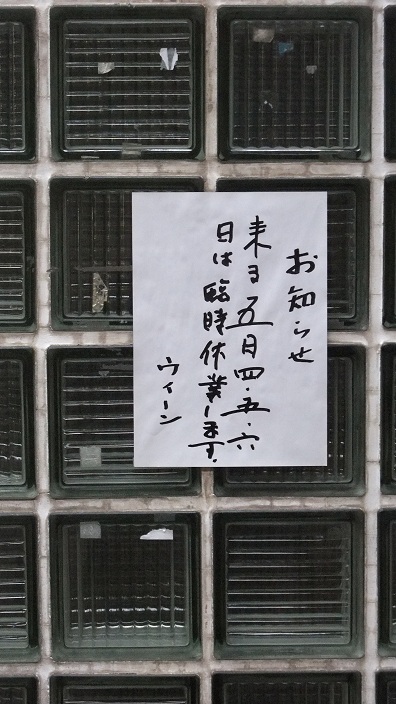 お知らせ
来る五月四・五・六
日は臨時休業します。
ウィーン